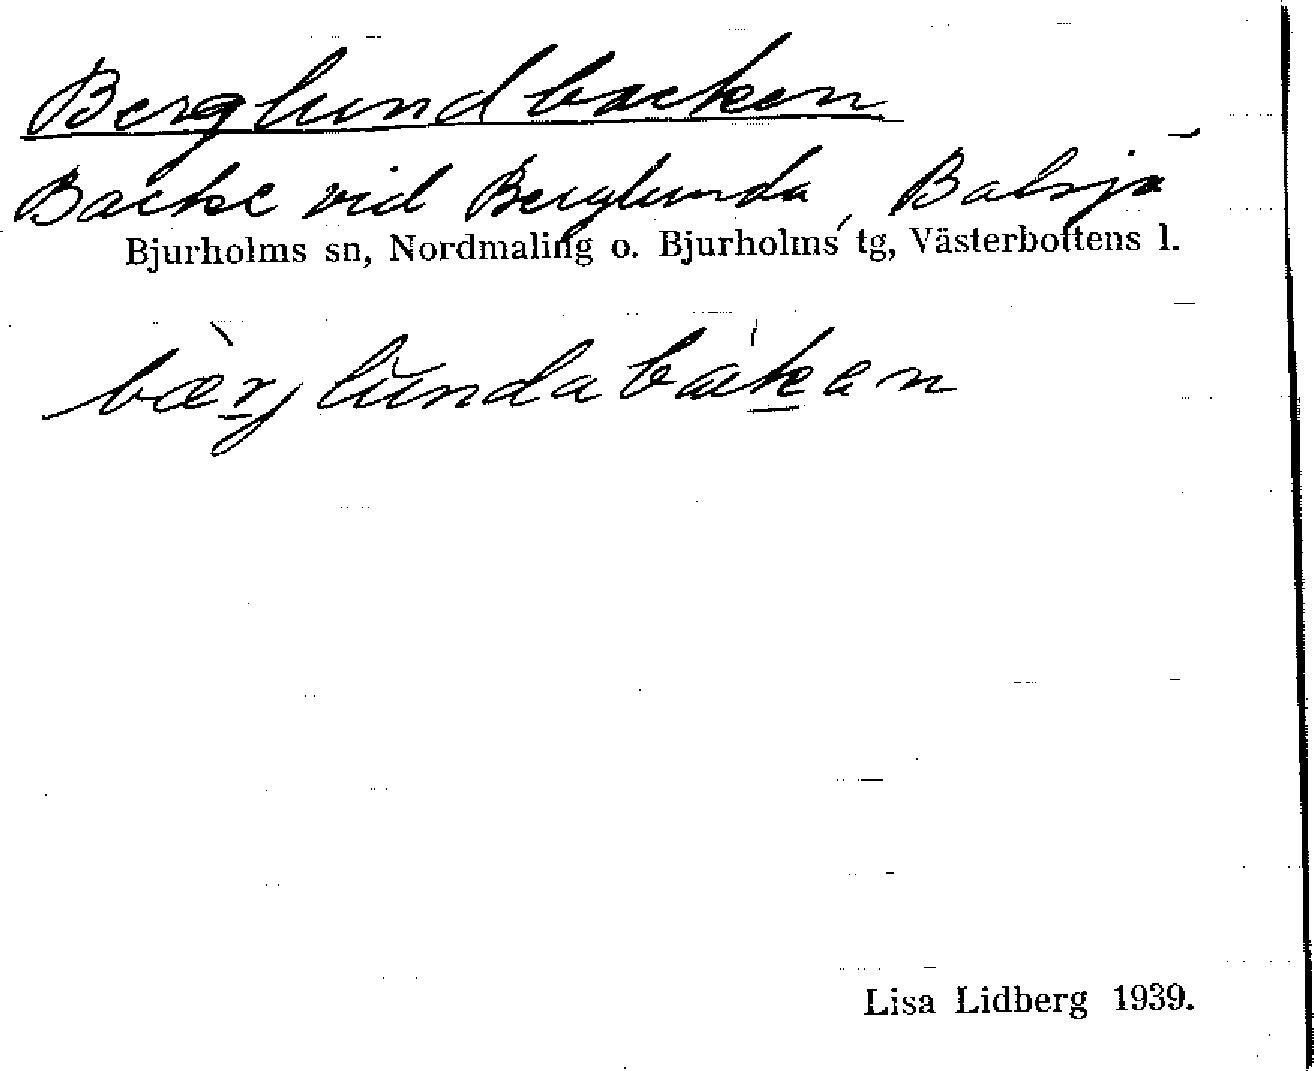 Berglundbacken
Backe vid Berglunda, Balsjö
Bjurholms sn, Nordmaling o. Bjurholms tg, Västerbottens l.
bæ̀rjlŭndabákan
Lisa Lidberg 1939.